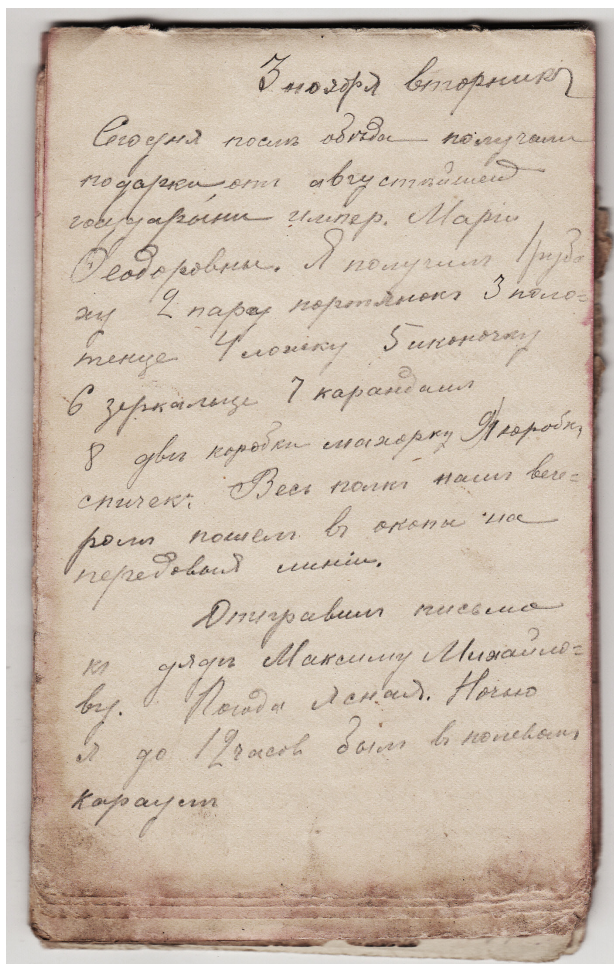 3 ноября вторникъ
Сегодня послѣ обѣда получали
подарки отъ августѣйшей
государыни импер. Маріи
Ѳеодоровны. Я получилъ 1) руба
ху 2 пару портянокъ 3 поло=
тенце 4 ложку 5 иконочку
6 зеркальце 7 карандашъ
8 двѣ коробки махорку 9) коробку
спичекъ. Весь полкъ нашъ вече=
ромъ пошелъ въ окопы на
передовыя линіи.
Отправилъ письмо
къ дядѣ Максиму Михайло=
ву. Погода ясная. Ночью
я до 12 часов былъ в полевомъ
караулѣ